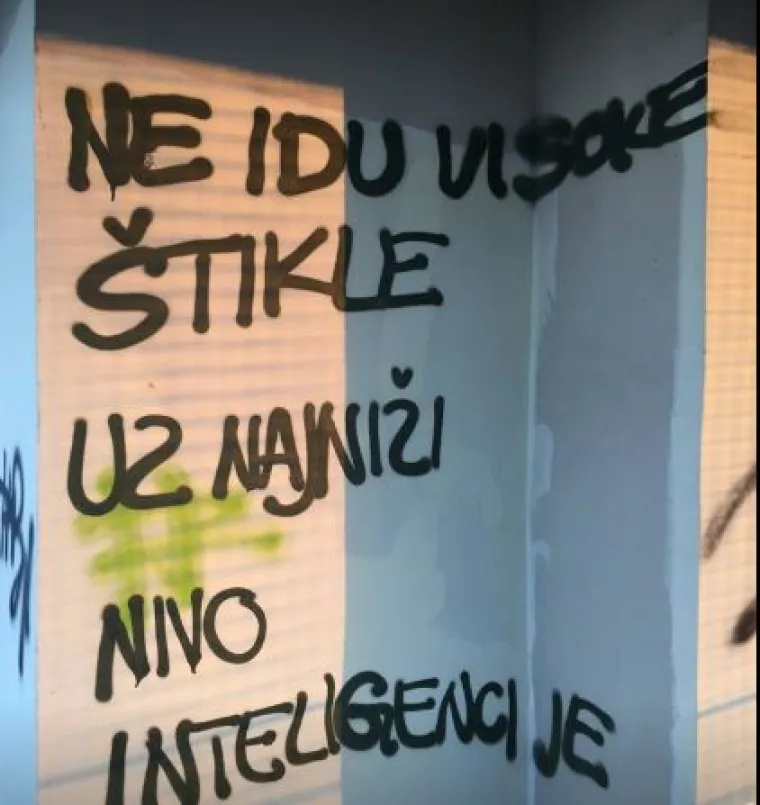 NE IDU VISOKE
ŠTIKLE
UZ NAJNIŽI
NIVO
INTELIGENCIJE